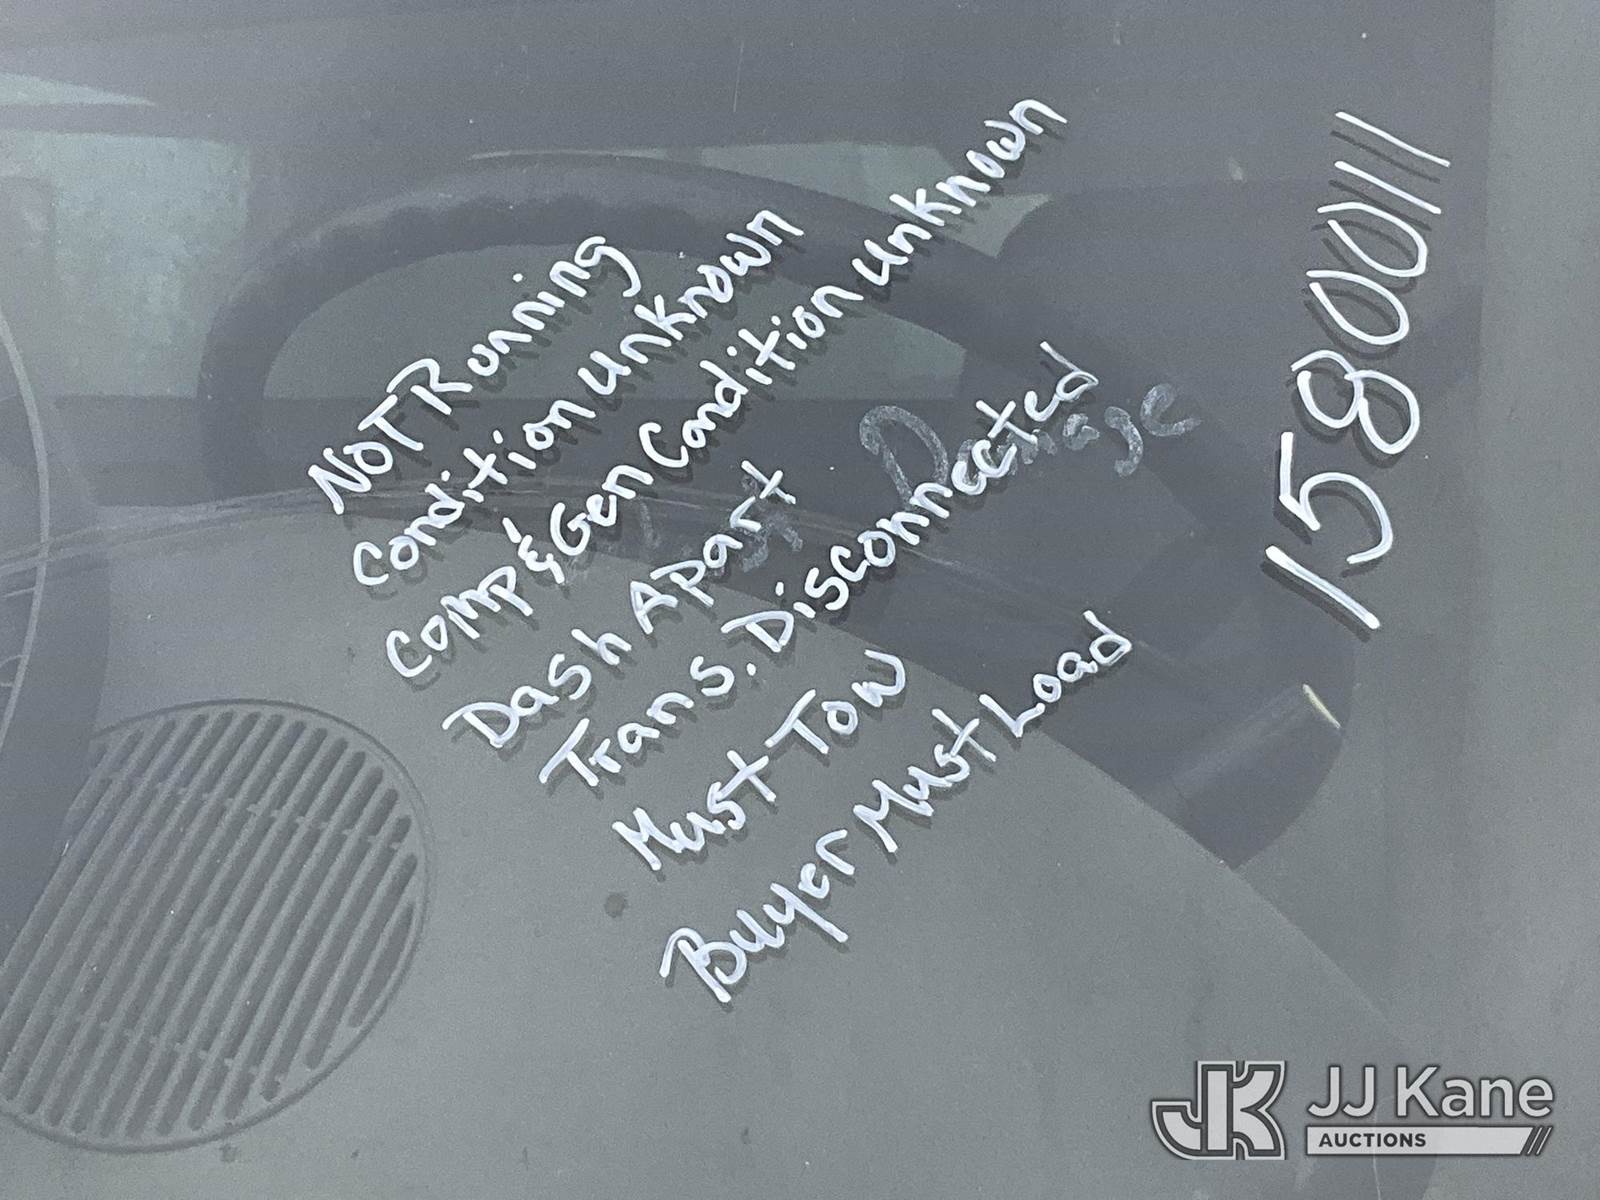 NOT Running
Condition Unknown
Comp & Gen Condition Unknown
Dash Apart
Trans. Disconnected
Must Tow
Buyer Must Load
Damage
1580011
JJ Kane
AUCTIONS